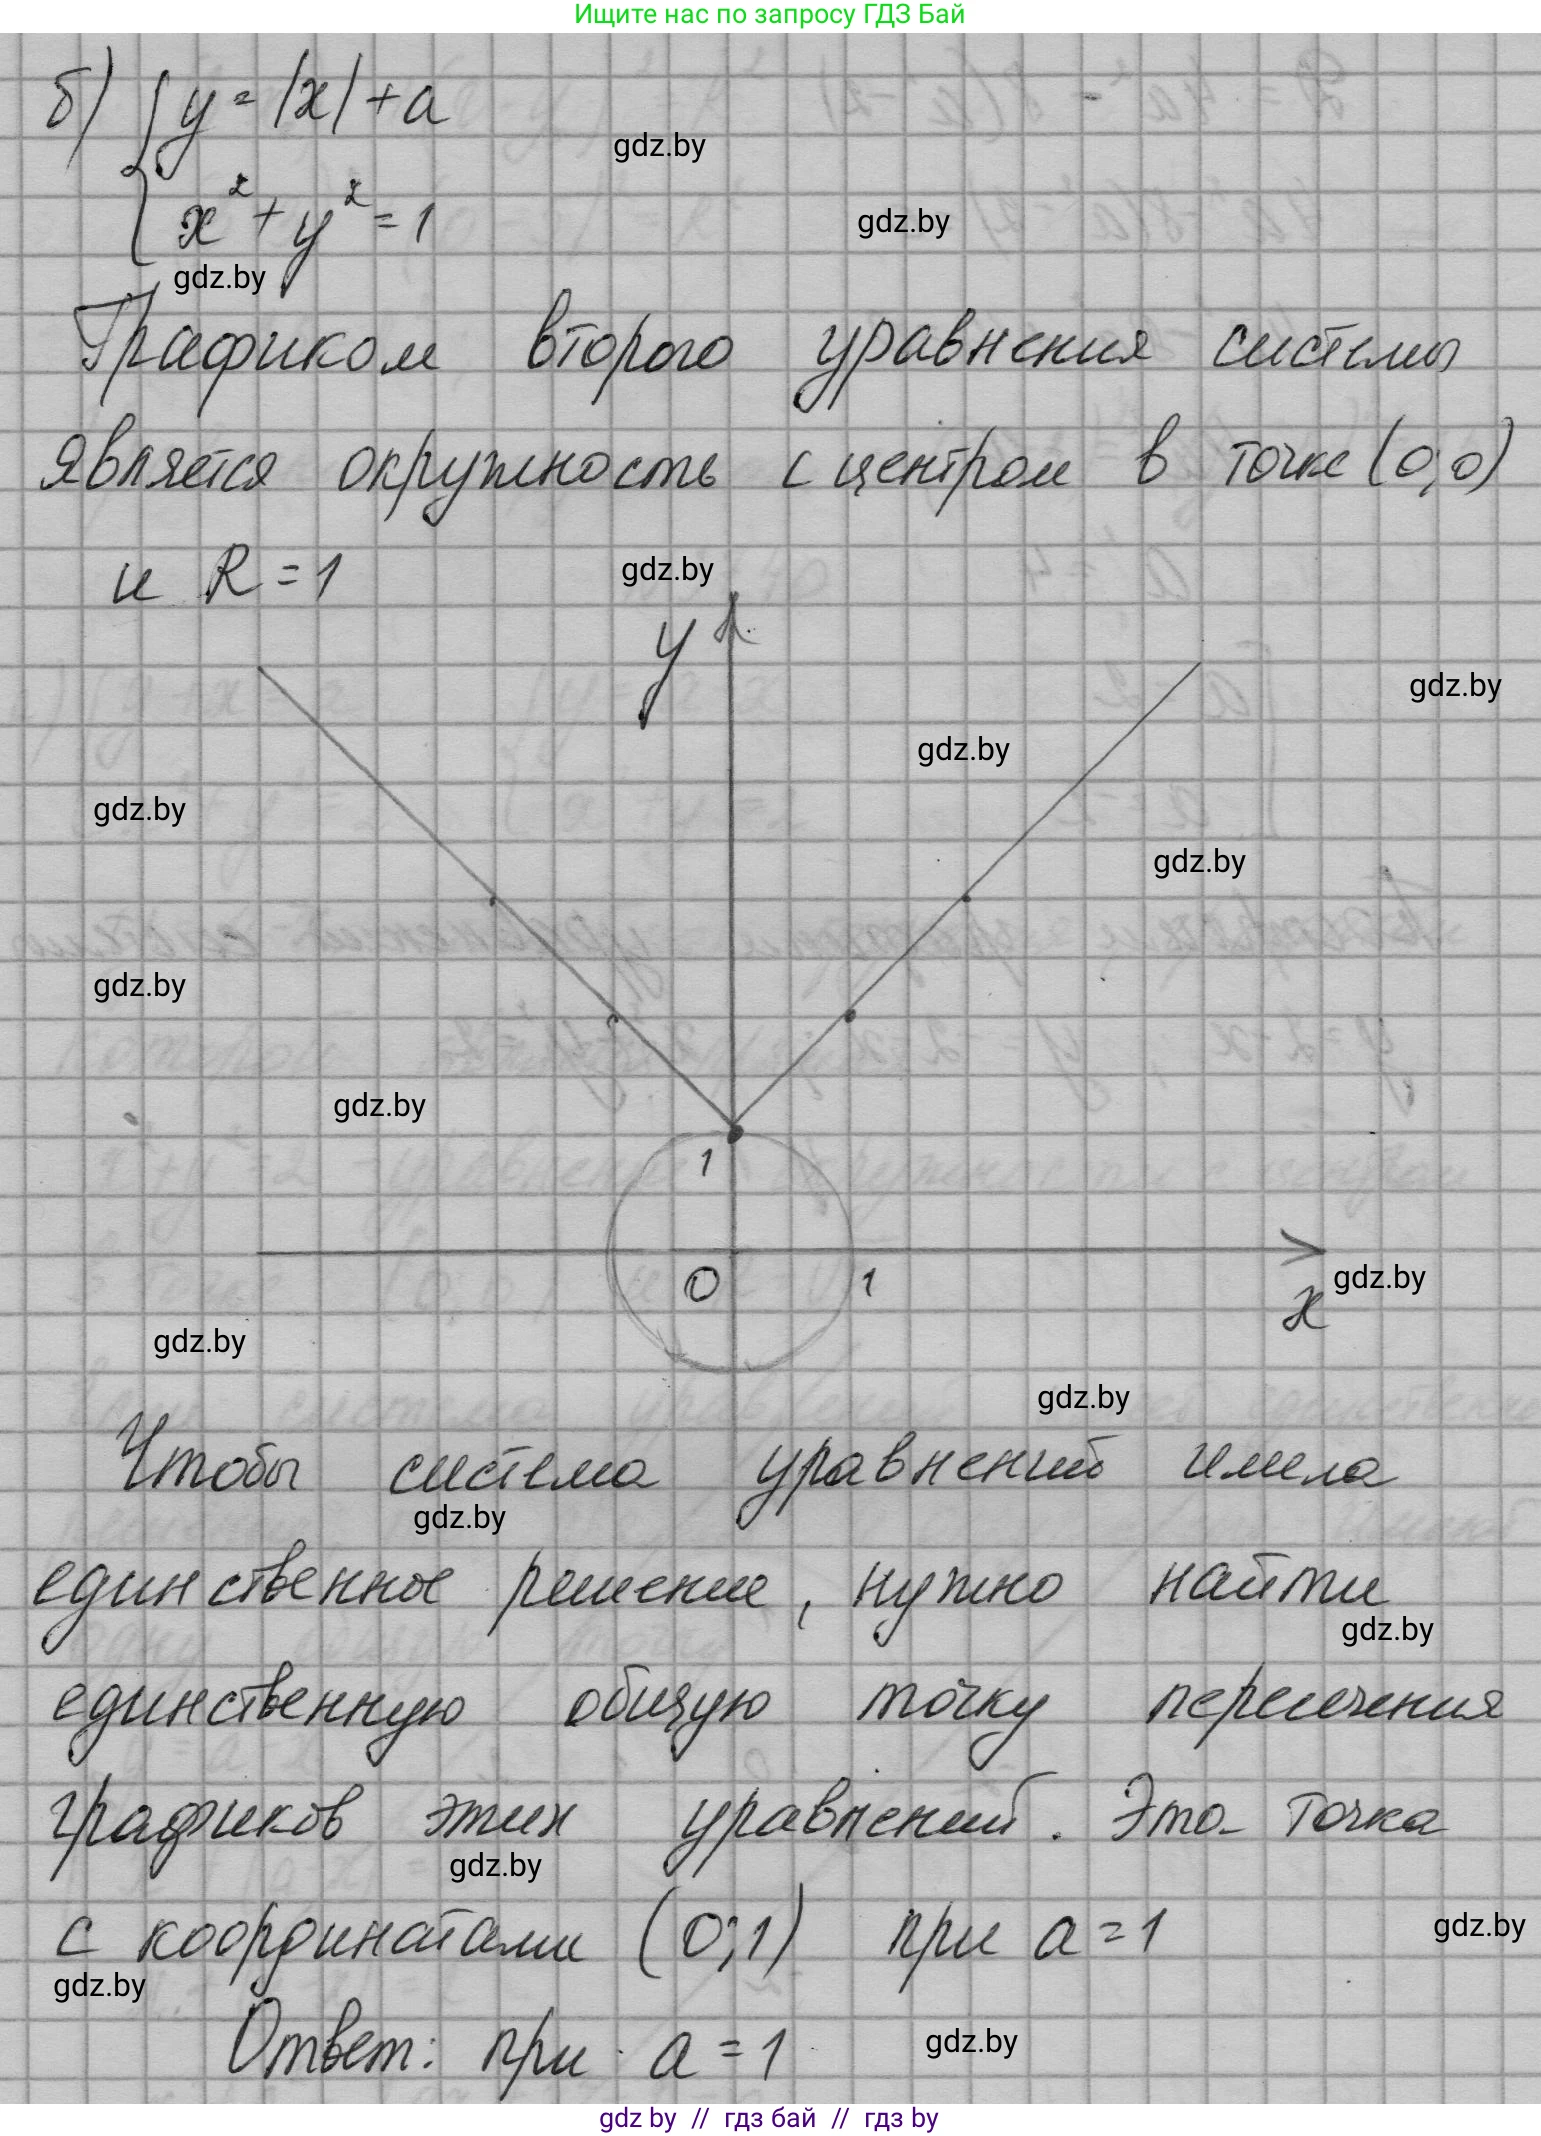 Ищите нас по запросу ГДЗ Бай
б) { y = |x| + a
gdz.by
x² + y² = 1
gdz.by
gdz.by
Графиком второго уравнения системы
является окружность с центром в точке (0;0)
и R = 1
gdz.by
y
gdz.by
gdz.by
gdz.by
gdz.by
gdz.by
gdz.by
1
0
1
gdz.by
x
gdz.by
gdz.by
Чтобы система уравнений имела
gdz.by
единственное решение, нужно найти
gdz.by
единственную общую точку пересечения
графиков этих уравнений. Это точка
gdz.by
с координатами (0;1) при a = 1
gdz.by
gdz.by
Ответ: при a = 1
gdz.by
gdz by // гдз бай // гдз by